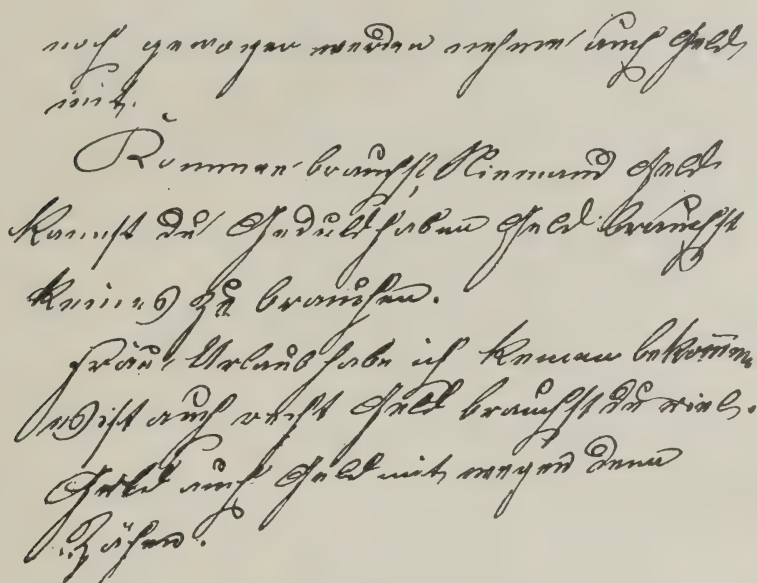 noch gewogen werden nehme auch Geld
mit.
Kommen braucht Niemand Geld
kannst du Geduld haben Geld brauchst
keines zu brauchen.
Frau Urlaub habe ich keinen bekomm
es ist auch recht Geld brauchst du viel.
Geld auch Geld mit wegen denn